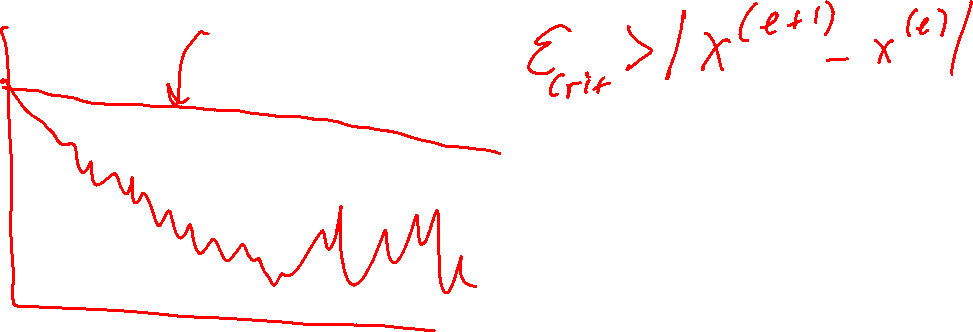 ε_crit > | x^(e+1) - x^(e) |